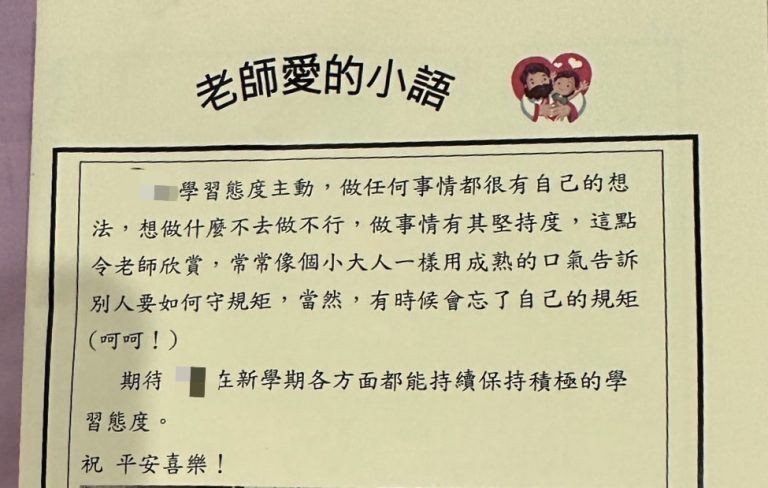 老師愛的小語
學習態度主動，做任何事情都很有自己的想
法，想做什麼不去做不行，做事情有其堅持度，這點
令老師欣賞，常常像個小大人一樣用成熟的口氣告訴
別人要如何守規矩，當然，有時候會忘了自己的規矩
(呵呵！)
期待 在新學期各方面都能持續保持積極的學
習態度。
祝 平安喜樂！